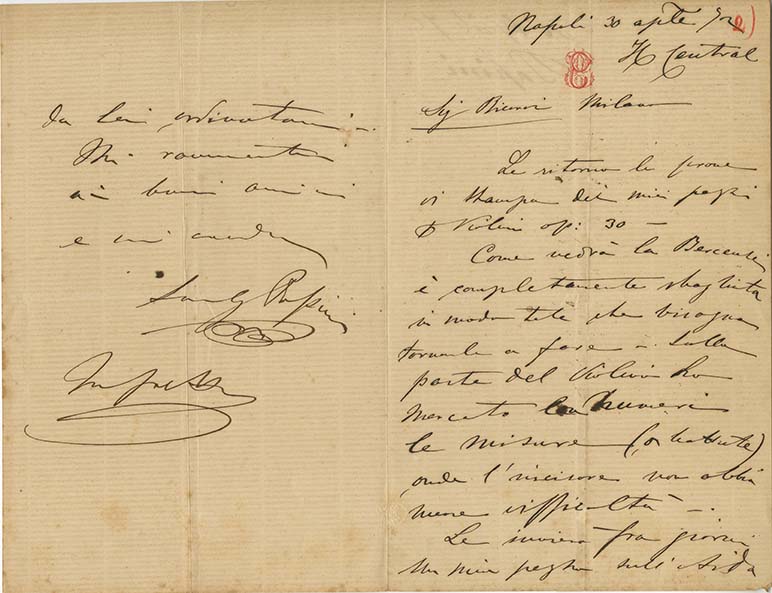 Napoli 30 aple 72
2)
H Central
Sig Milano
Le ritorno le prove
di stampa dei miei pezzi
p Violino op: 30 —
Come vedrà la Berceuse
è completamente sbagliata
in modo tale che bisogna
tornarla a fare — Sulla
parte del Violino ho
Marcato con Numeri
le misure (o battute)
onde l'incisore non abbia
nuove difficoltà —.
Le invierò fra giorni
un mio pezzo sull'Aida
da Lei ordinatomi —.
Mi rammenti
ai buoni amici
e mi creda
Papini
In fretta